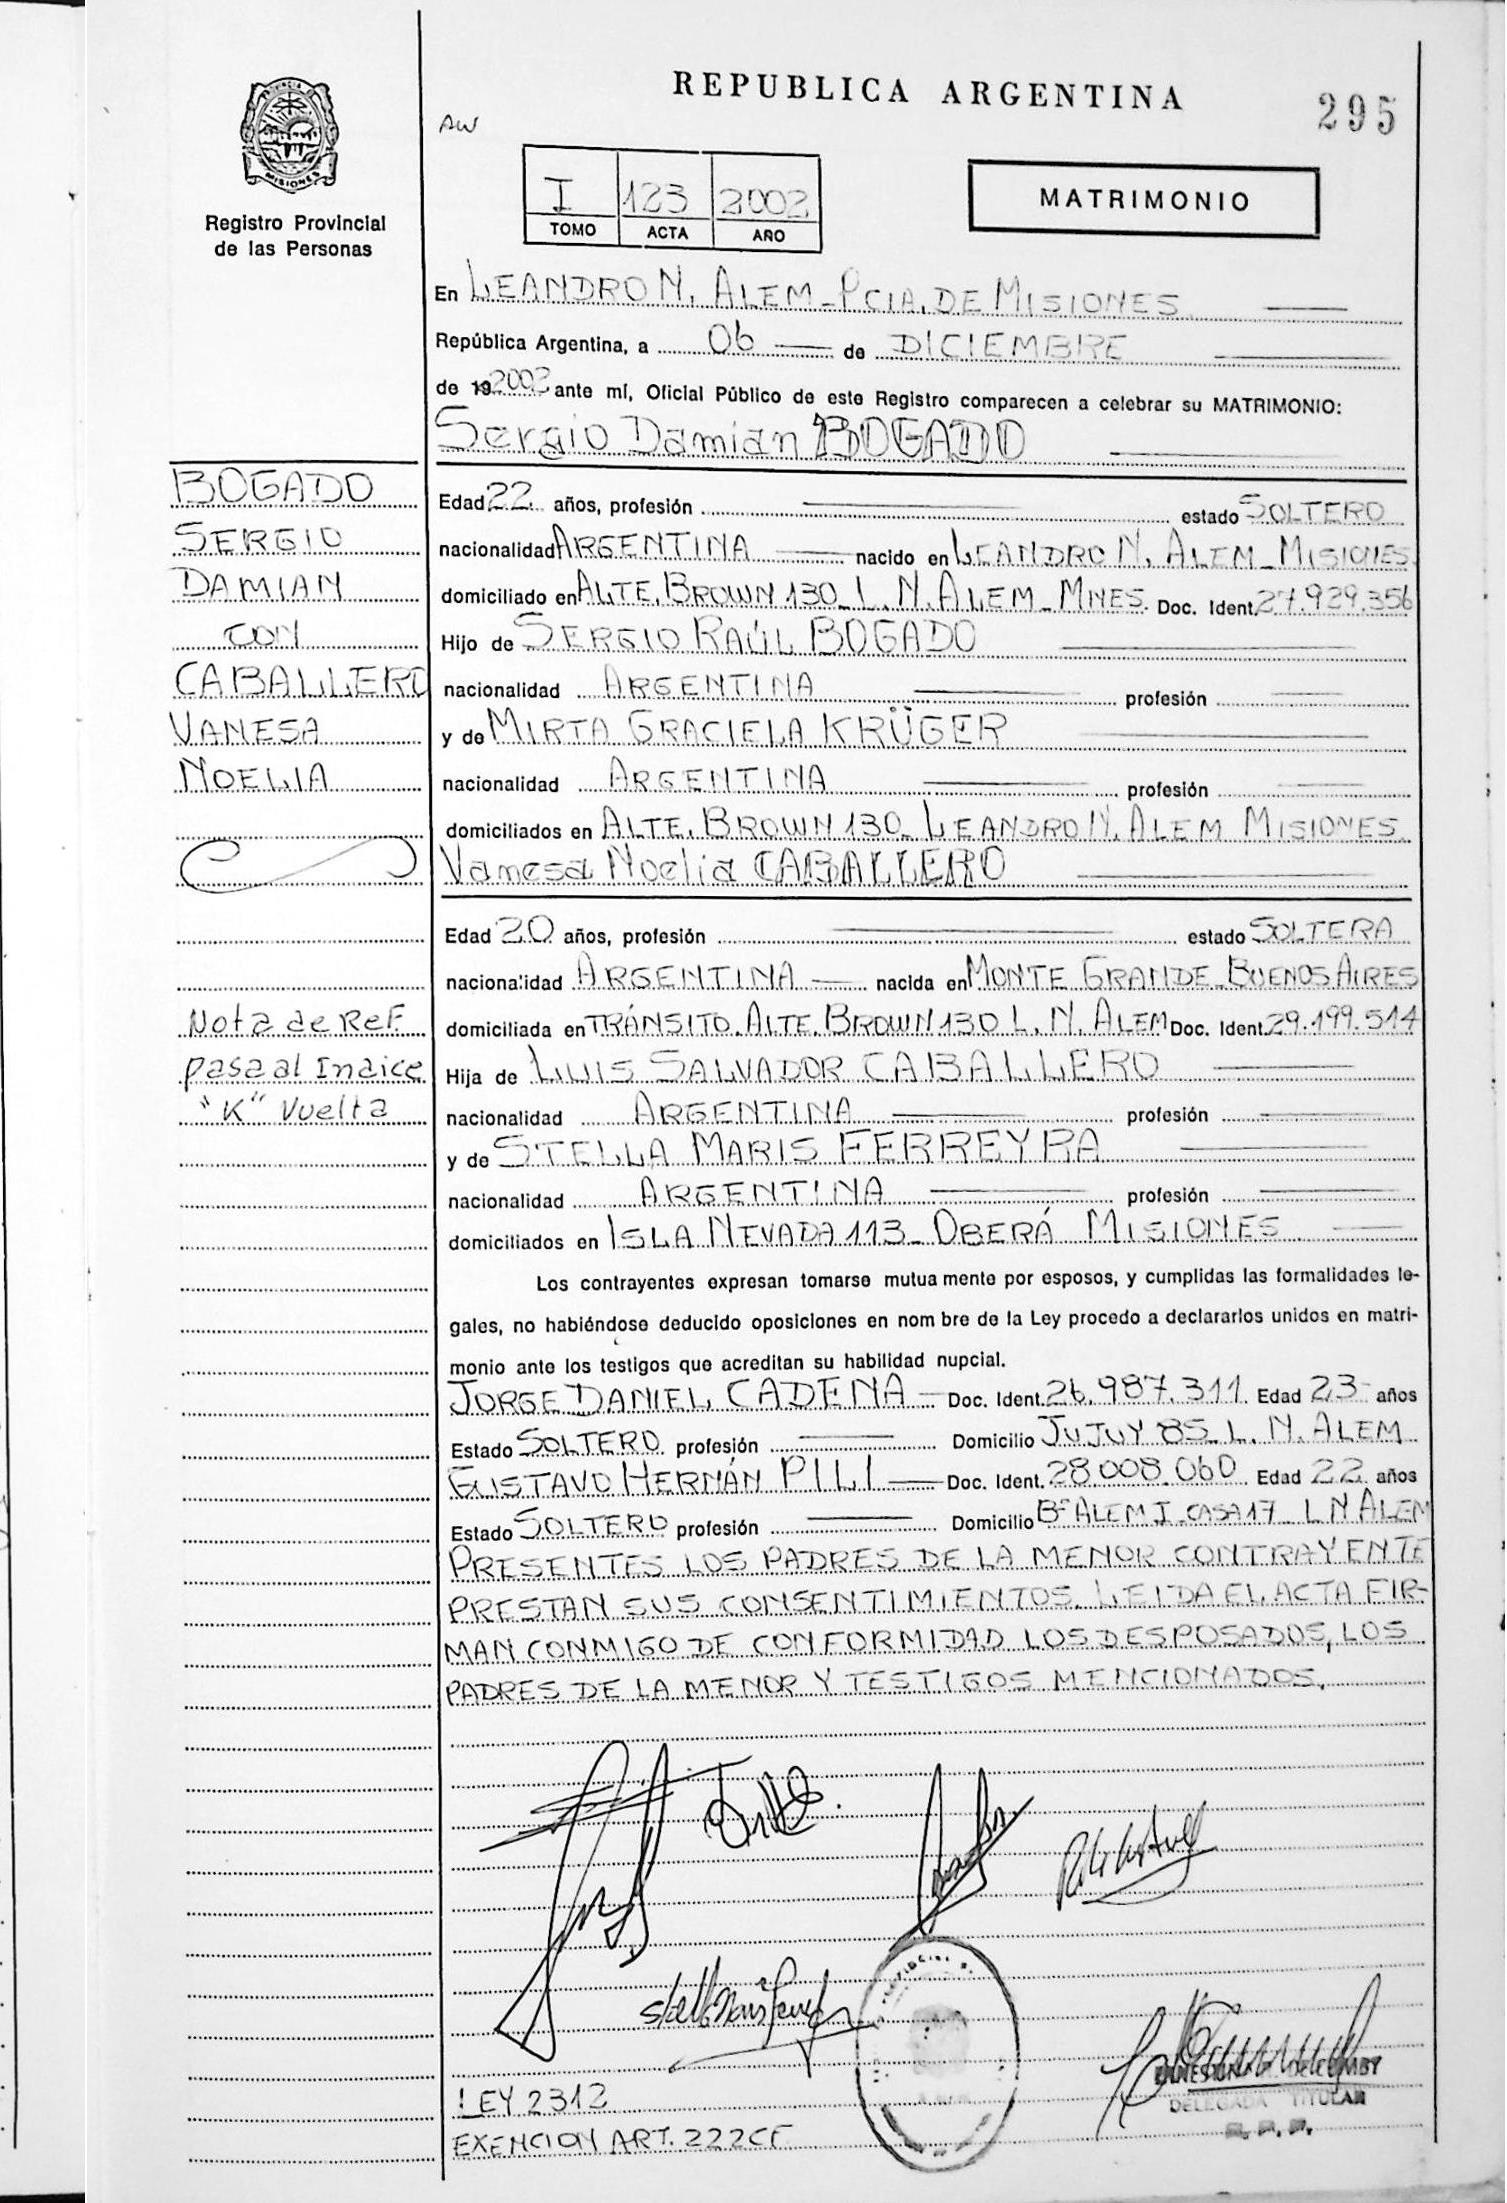 REPUBLICA ARGENTINA
295
AW
PROVINCIA DE
MISIONES
Registro Provincial
de las Personas
I 123 2002
TOMO ACTA AÑO
MATRIMONIO
En LEANDRO N. ALEM - PCIA. DE MISIONES
República Argentina, a 06 de DICIEMBRE
de 19 2002 ante mí, Oficial Público de este Registro comparecen a celebrar su MATRIMONIO:
Sergio Damian BOGADO
BOGADO
SERGIO
DAMIAN
CON
CABALLERO
VANESA
NOELIA
Edad 22 años, profesión estado SOLTERO
nacionalidad ARGENTINA nacido en LEANDRO N. ALEM - MISIONES
domiciliado en ALTE. BROWN 130 - L. N. ALEM - MNES. Doc. Ident. 27.929.356
Hijo de SERGIO RAÚL BOGADO
nacionalidad ARGENTINA profesión
y de MIRTA GRACIELA KRÜGER
nacionalidad ARGENTINA profesión
domiciliados en ALTE. BROWN 130 - LEANDRO N. ALEM MISIONES
Vanesa Noelia CABALLERO
Edad 20 años, profesión estado SOLTERA
nacionalidad ARGENTINA nacida en MONTE GRANDE - BUENOS AIRES
domiciliada en TRÁNSITO. ALTE. BROWN 130 L. N. ALEM Doc. Ident. 29.199.514
Hija de LUIS SALVADOR CABALLERO
nacionalidad ARGENTINA profesión
y de STELLA MARIS FERREYRA
nacionalidad ARGENTINA profesión
domiciliados en ISLA NEVADA 113 - OBERÁ MISIONES
Nota de Ref.
pasa al Indice
"K" Vuelta
Los contrayentes expresan tomarse mutua mente por esposos, y cumplidas las formalidades le-
gales, no habiéndose deducido oposiciones en nom bre de la Ley procedo a declararlos unidos en matri-
monio ante los testigos que acreditan su habilidad nupcial.
JORGE DANIEL CADENA Doc. Ident. 26.987.311 Edad 23 años
Estado SOLTERO profesión Domicilio JUJUY 85 - L. N. ALEM
GUSTAVO HERNÁN PILI Doc. Ident. 28.008.060 Edad 22 años
Estado SOLTERO profesión Domicilio Bº ALEM I - CASA 17 - L N ALEM
PRESENTES LOS PADRES DE LA MENOR CONTRAYENTE
PRESTAN SUS CONSENTIMIENTOS. LEIDA EL ACTA FIR-
MAN CONMIGO DE CONFORMIDAD LOS DESPOSADOS, LOS
PADRES DE LA MENOR Y TESTIGOS MENCIONADOS.
DELEGADA TITULAR
R. P. P.
LEY 2312
EXENCION ART. 222 CF